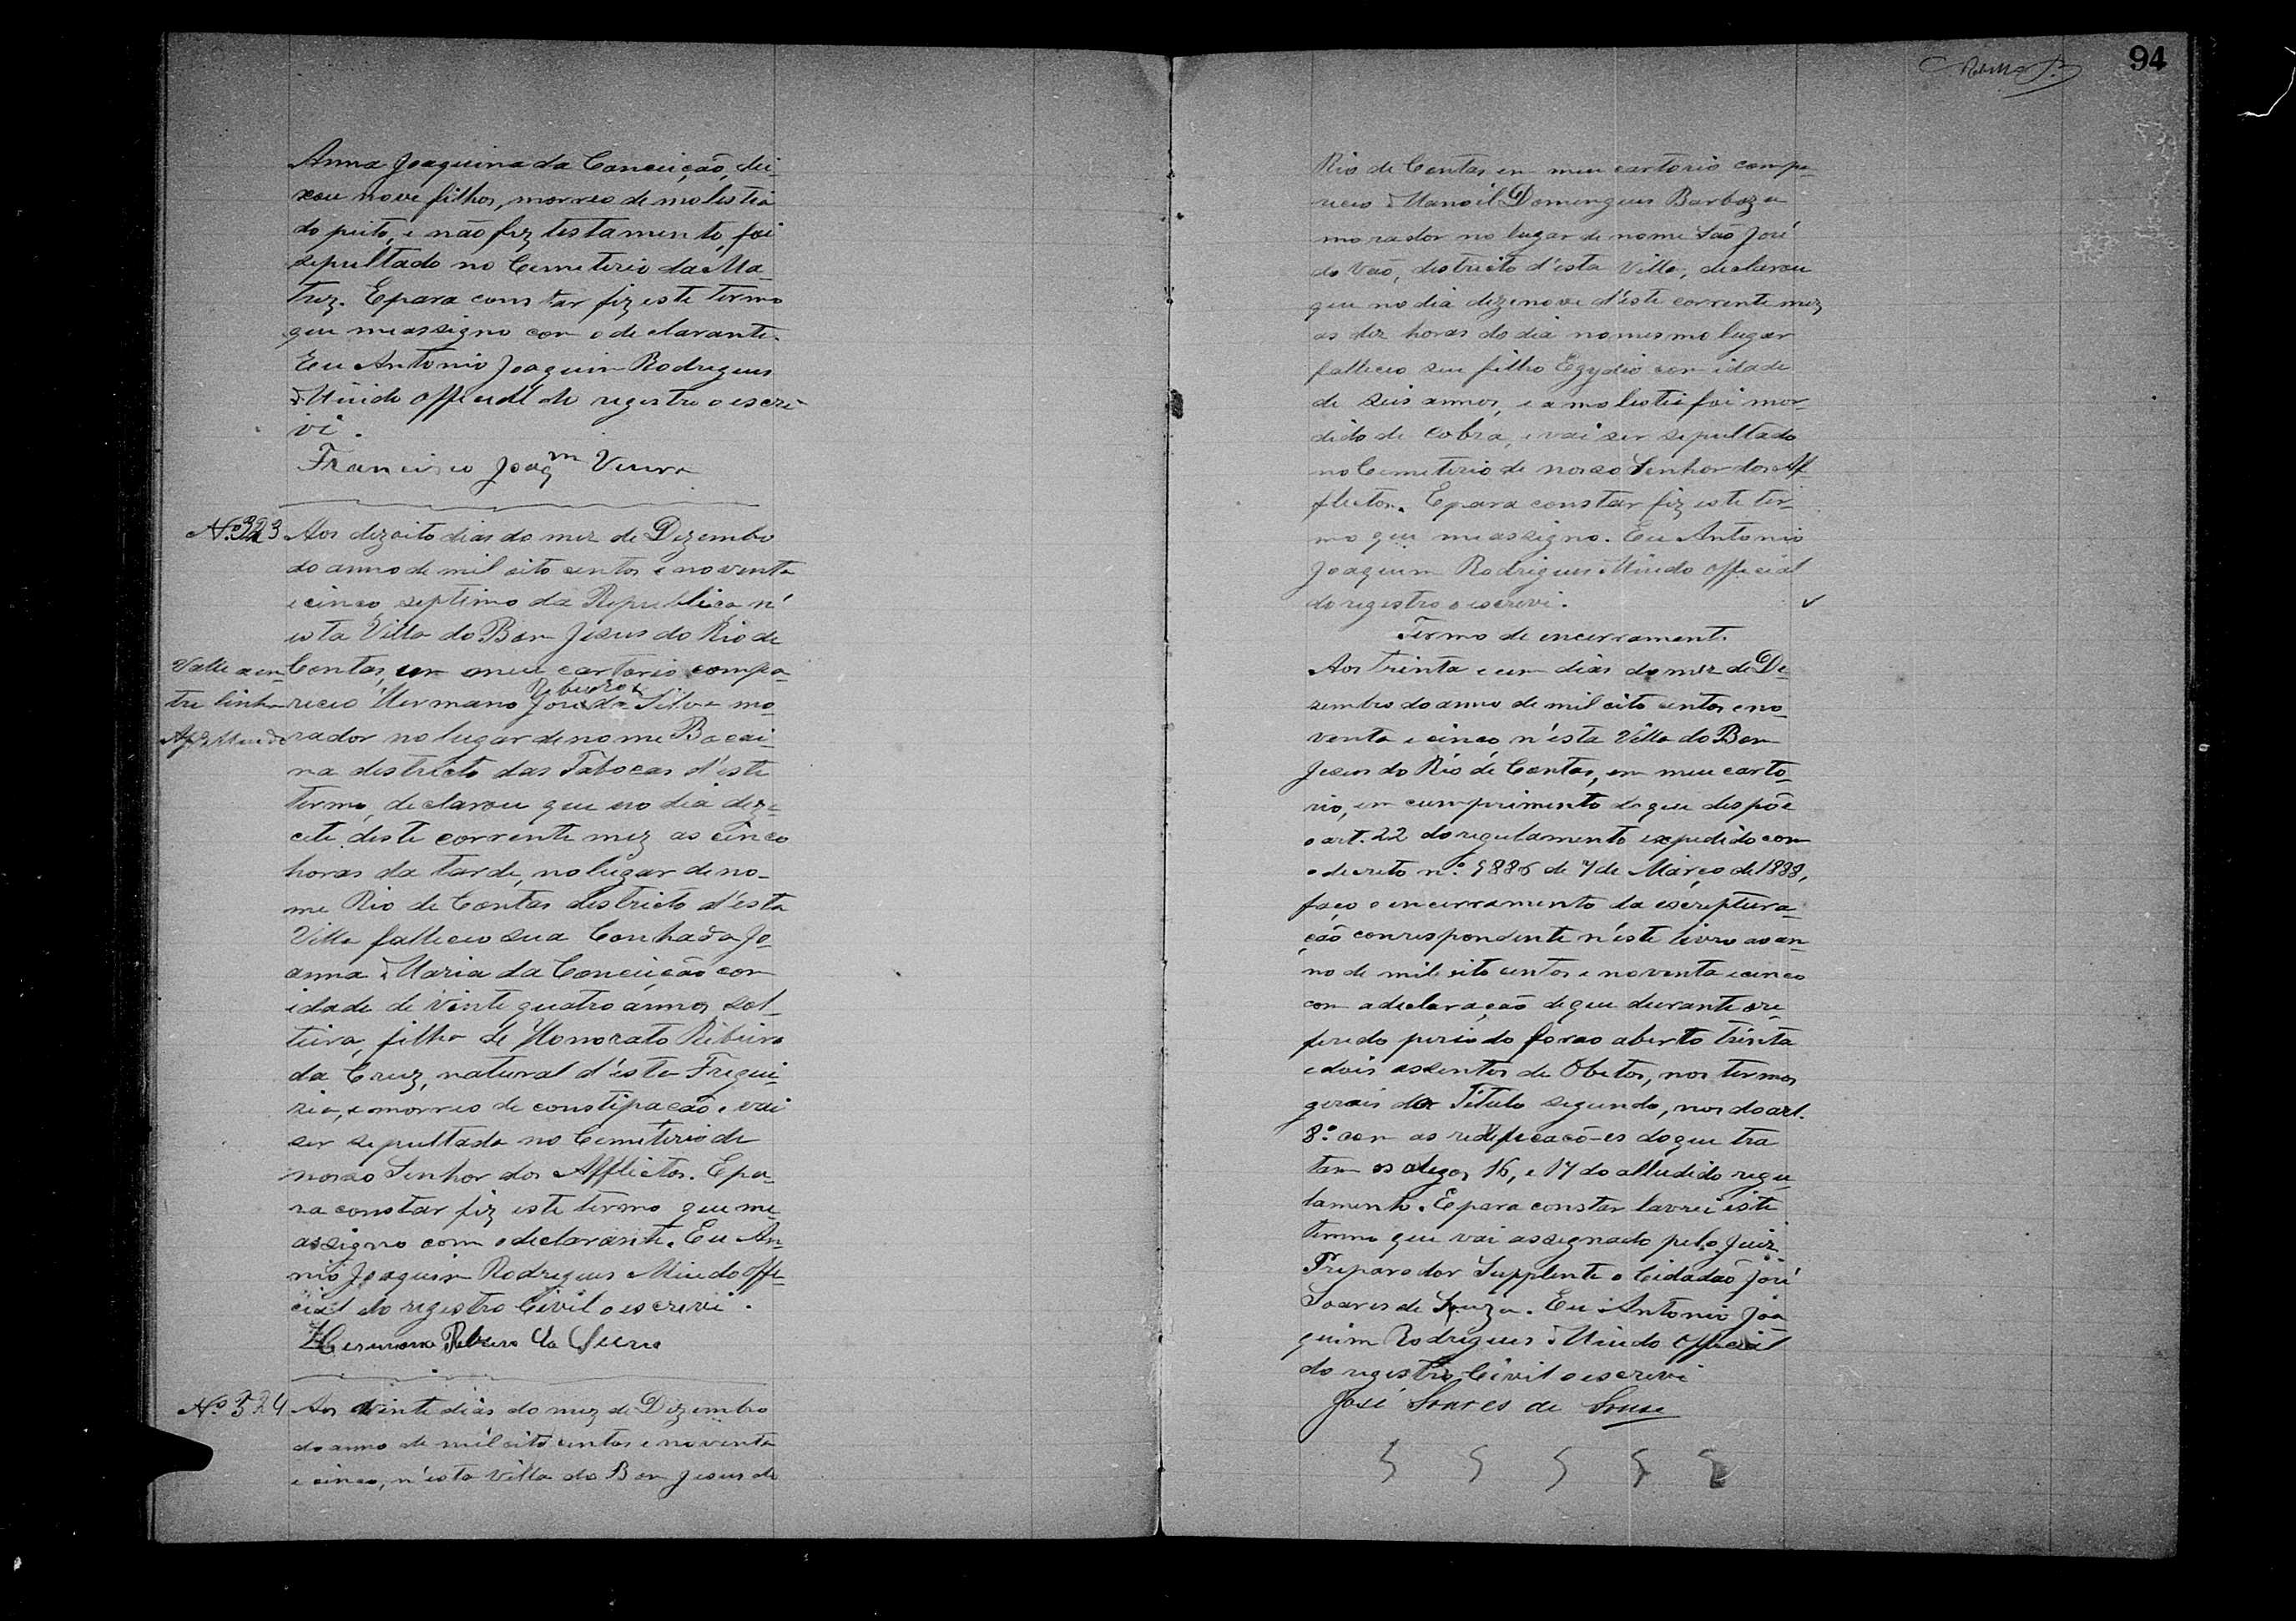 Anna Joaquina da Conceição, dei-
xou nove filhos, morreo de molestia
do peito, e não fez testamento, foi
sepultado no Cemeterio da Ma-
triz. E para constar fiz este termo
que me assigno com o declarante.
Eu Antonio Joaquim Rodrigues
Miudo official do registro o escre-
vi.
Francisco Joaqm Vieira
No. 323 Aos dezoito dias do mez de Dezembro
do anno de mil oito centos e noventa
e cinco, septimo da Republica n'
esta Villa do Bom Jesus do Rio de
Valle a en- Contas, em meu cartorio compa-
tre linha recio Hermano José da Silva mo-
Ribeiro
rador no lugar de nome Bocai-
na districto das Tabocas d'este
termo, declarou que no dia deze-
cete deste corrente mez as cinco
horas da tarde, no lugar de no-
me Rio de Contas districto d'esta
Villa falleceo sua Conhada Jo-
anna Maria da Conceição com
idade de vinte quatro annos sol-
teira, filha de Honorato Ribeiro
da Cruz, natural d'esta Fregue-
zia, e morreo de constipação e vai
ser sepultada no Cemeterio de
nosso Senhor dos Afflictos. E pa-
ra constar fiz este termo que me
assigno com o declarante. Eu An-
nio Joaquim Rodrigues Miudo offi-
cial do registro Civil o escrevi.
Hermano Ribeiro da
No. 324 Aos vinte dias do mez de Dezembro
do anno de mil oito centos e noventa
e cinco, n'esta Villa do Bom Jesus do
94
Rio de Contas em meu cartorio compa-
receo Manoel Domingues Barboza
morador no lugar de nome São José
do Vao, districto d'esta Villa, declarou
que no dia dezenove d'este corrente mez
as dez horas do dia no mesmo lugar
falleceo seu filho Egydio com idade
de seis annos, e a molestia foi mor-
dido de cobra, e vai ser sepultado
no Cemeterio de nosso Senhor dos Af-
flictos. E para constar fiz este ter-
mo que me assigno. Eu Antonio
Joaquim Rodrigues Miudo official
do registro o escrevi.
Termo de encerramento
Aos trinta e um dias do mez de De-
zembro do anno de mil oito centos e no-
venta e cinco, n'esta Villa do Bom
Jesus do Rio de Contas, em meu carto-
rio, em cumprimento do que dispõe
o art. 22 do regulamento expedido com
o decreto n.º 9886 de 7 de Março de 1888,
faço o encerramento da escriptura-
ção correspondente n'este livro ao an-
no de mil oito centos e noventa e cinco
com a declaração de que durante o re-
ferido periodo forão aberto trinta
e dois assentos de Obitos, nos termos
gerais do Titulo segundo, nos do art.
8.º com as do que tra
tam os 16, e 17 do alludido regu-
lamento. E para constar lavrei este
termo que vai assignado pelo Juiz
Preparador Supplente o Cidadão José
Soares de Souza. Eu Antonio Joa-
quim Rodrigues Miudo official
do registro Civil o escrevi
José Soares de Souza